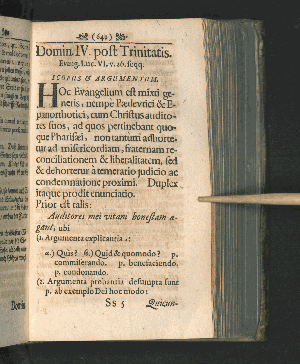 (641)
Domin. IV. post Trinitatis.
Evang. Luc. VI. v. 36. seqq.
SCOPUS & ARGUMENTUM.
HOc Evangelium est mixti ge-
neris, nempe Paedevtici & E-
panorthotici, cum Christus audito-
res suos, ad quos pertinebant quo-
que Pharisaei, non tantum adhorte-
tur ad misericordiam, fraternam re-
conciliationem & liberalitatem, sed
& dehortetur à temerario judicio ac
condemnatione proximi. Duplex
itaque prodit enunciatio.
Prior est talis:
Auditores mei vitam honestam a-
gant, ubi
(1. Argumenta explicantia :
α.) Quis? β.) Quid & quomodo? p.
commiserando. p. beneficiendo.
p. condonando.
(2. Argumenta probantia desumpta sunt
p. ab exemplo Dei hoc modo:
Ss 5 Quicun-
Domin